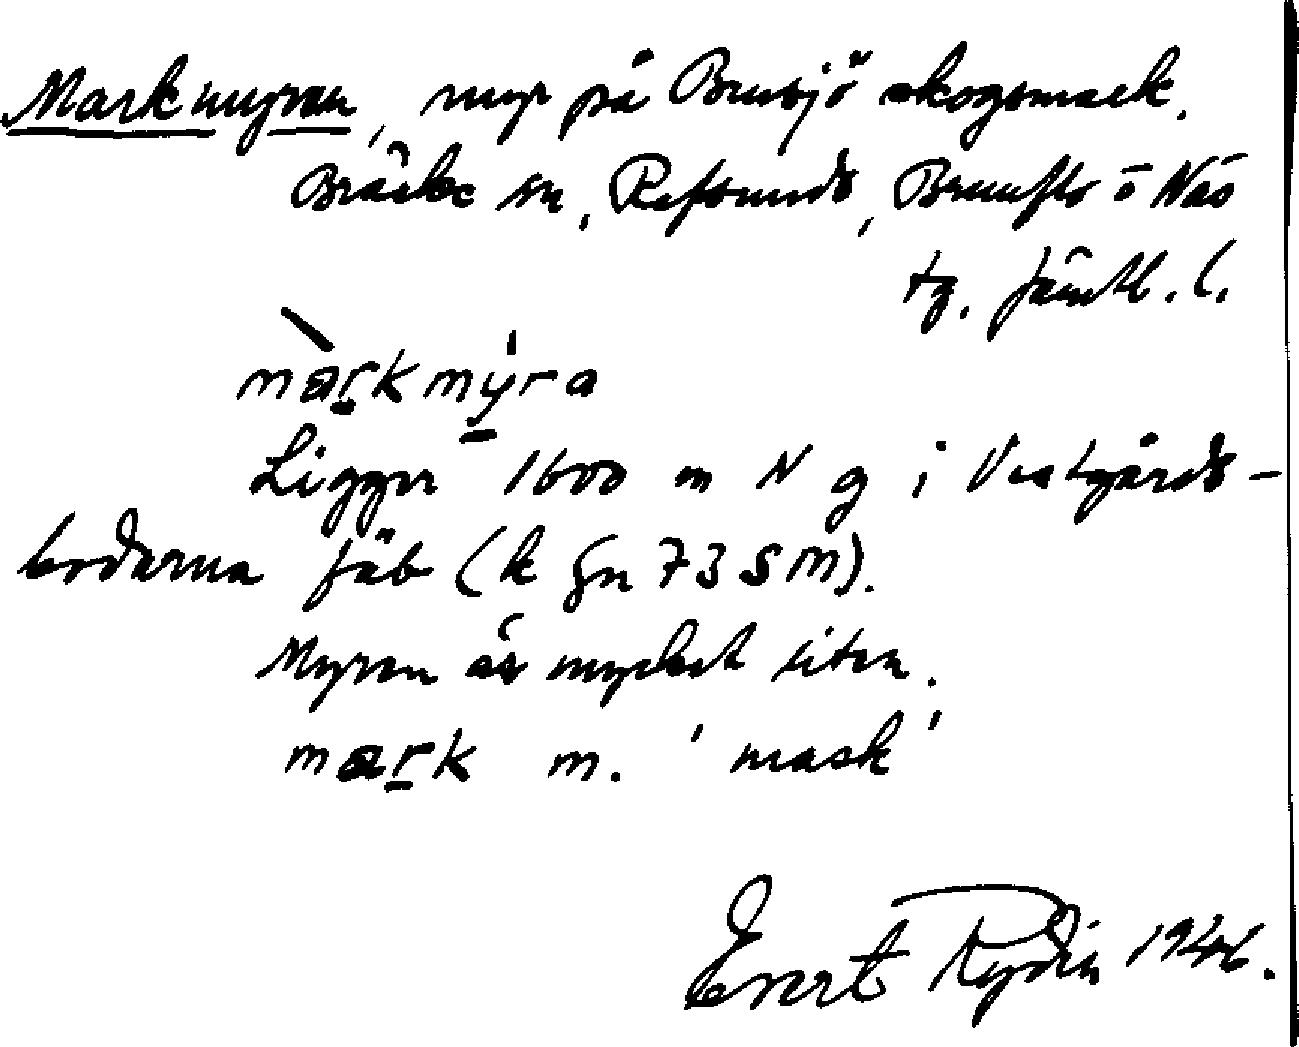 Markmyran, myr på Brusjö skogsmark.
Bräcke sn, Refsunds, Brunflo o Näs
tg. Jämtl. l.
mark myra
Ligger 1600 m N g i Västgårds-
bodarna fäb (k gn 73 S M).
Myren är mycket liten.
mark m. 'mask'
Evert Rydin 1946.